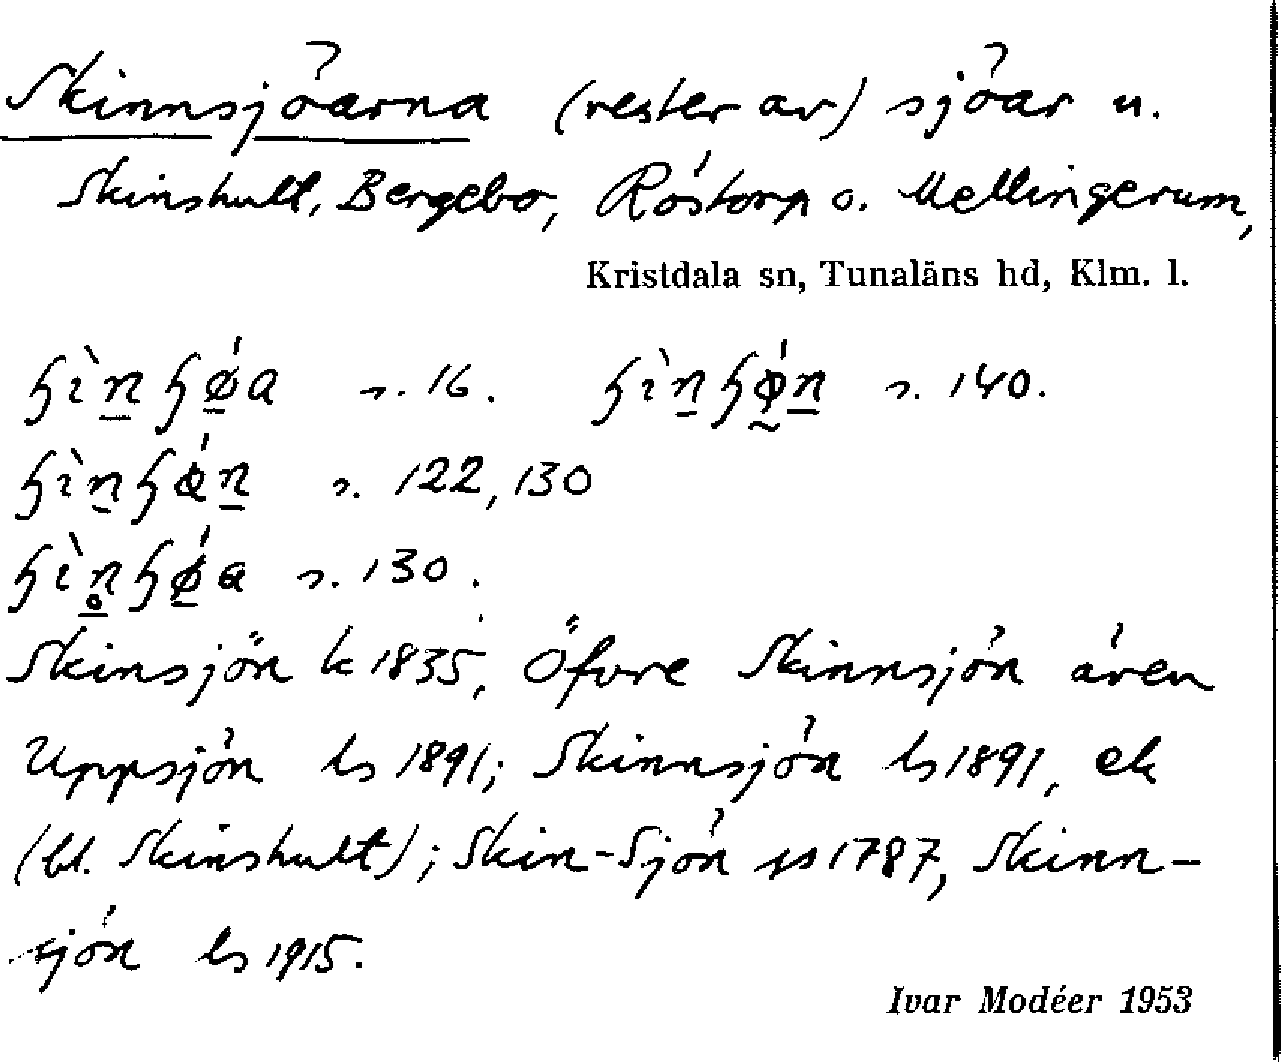 Skinnsjöarna (rester av) sjöar u.
Skinshult, Bergebo, Röstorp o. Mellingerum,
Kristdala sn, Tunaläns hd, Klm. l.
s. 16. s. 140.
s. 122, 130
s. 130.
Skinsjön k 1835, Öfvre Skinnsjön även
Uppsjön ls 1891; Skinnsjön ls 1891, ek
(bl. Skinshult); Skin-Sjön js 1787, Skinn-
sjön ls 1915.
Ivar Modéer 1953